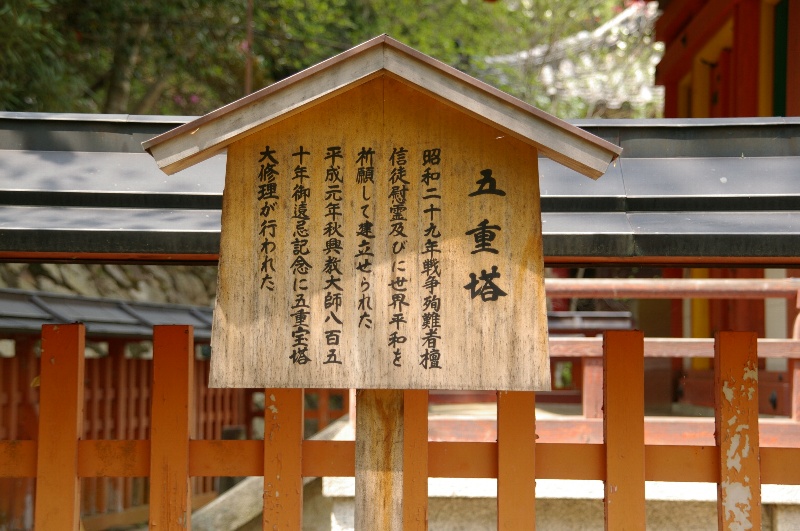 五重塔
昭和二十九年戦争殉難者檀
信徒慰霊及びに世界平和を
祈願して建立せられた
平成元年秋興教大師八百五
十年御遠忌記念に五重宝塔
大修理が行われた